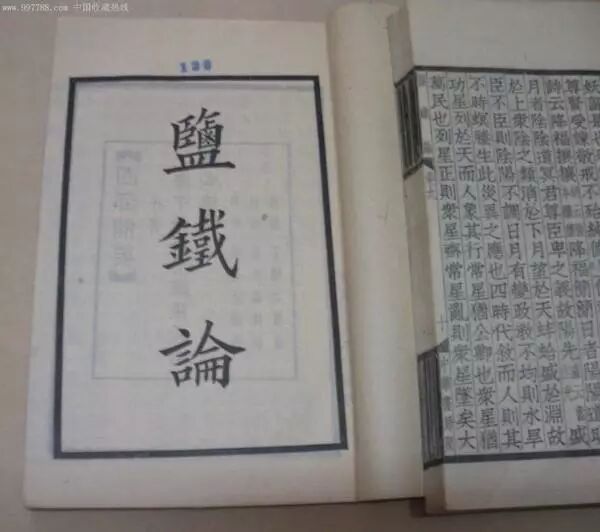 www.997788.com 中国收藏热线
鹽鐵論
尊賢受諫敬戒不殆
詩云降福穰穰降福簡簡日者陽陽道
月者陰陰道冥君尊臣卑之義故陽先
於上衆陰之類消於下月望於天蚌蛤盛於淵故
臣不臣則陰陽不調日月有變政教不均則水旱
不時螟螣生此災異之應也四時代敘而人則其
功星列於天而人象其行常星猶公卿也衆星猶
萬民也列星正則衆星齊常星亂則衆星墜矣大